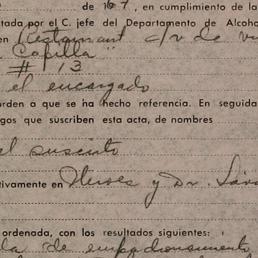 de 1967, en cumplimiento de la
tada por el C. jefe del Departamento de Alcoho
en Restaurant c/v de vi
Capilla"
# 13
el encargado
orden a que se ha hecho referencia. En seguida
gos que suscriben esta acta, de nombres
el suscrito
tivamente en Nieves y Dr.
ordenada, con los resultados siguientes:
de empadronamiento